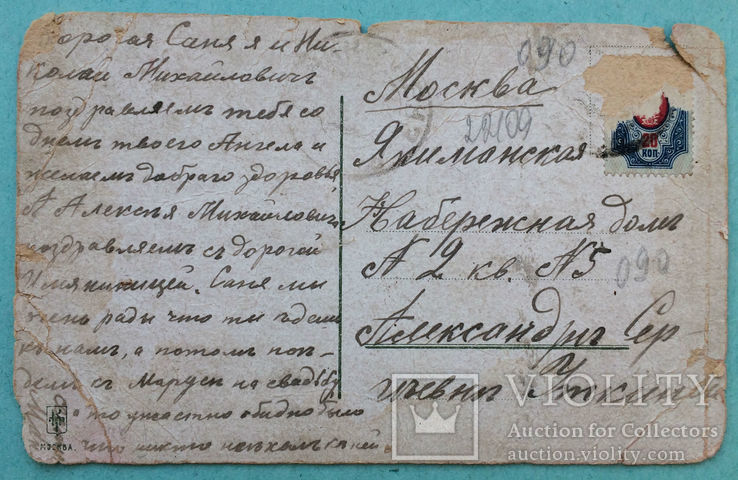 Дорогая Саня я и Ни-
колай Михайловичъ
поздравляемъ тебя со
днемъ твоего Ангела и
желаемъ добраго здоровья
А Алексѣя Михайловича
поздравляемъ съ дорогой
Имянинницей. Саня мы
очень рады что ты ѣдешь
къ намъ, а потомъ поѣ-
демъ съ Маруси на свадьбу
а то ужастно обидно было
что никто не ѣхалъ къ ней.
МОСКВА.
090
Москва
22/09
Якиманская
Набережная домъ
№ 2 кв. №5
090
Александрѣ Сер-
гѣевнѣ
20
КОП.
VIOLITY
Auction for Collectors
auction.violity.com